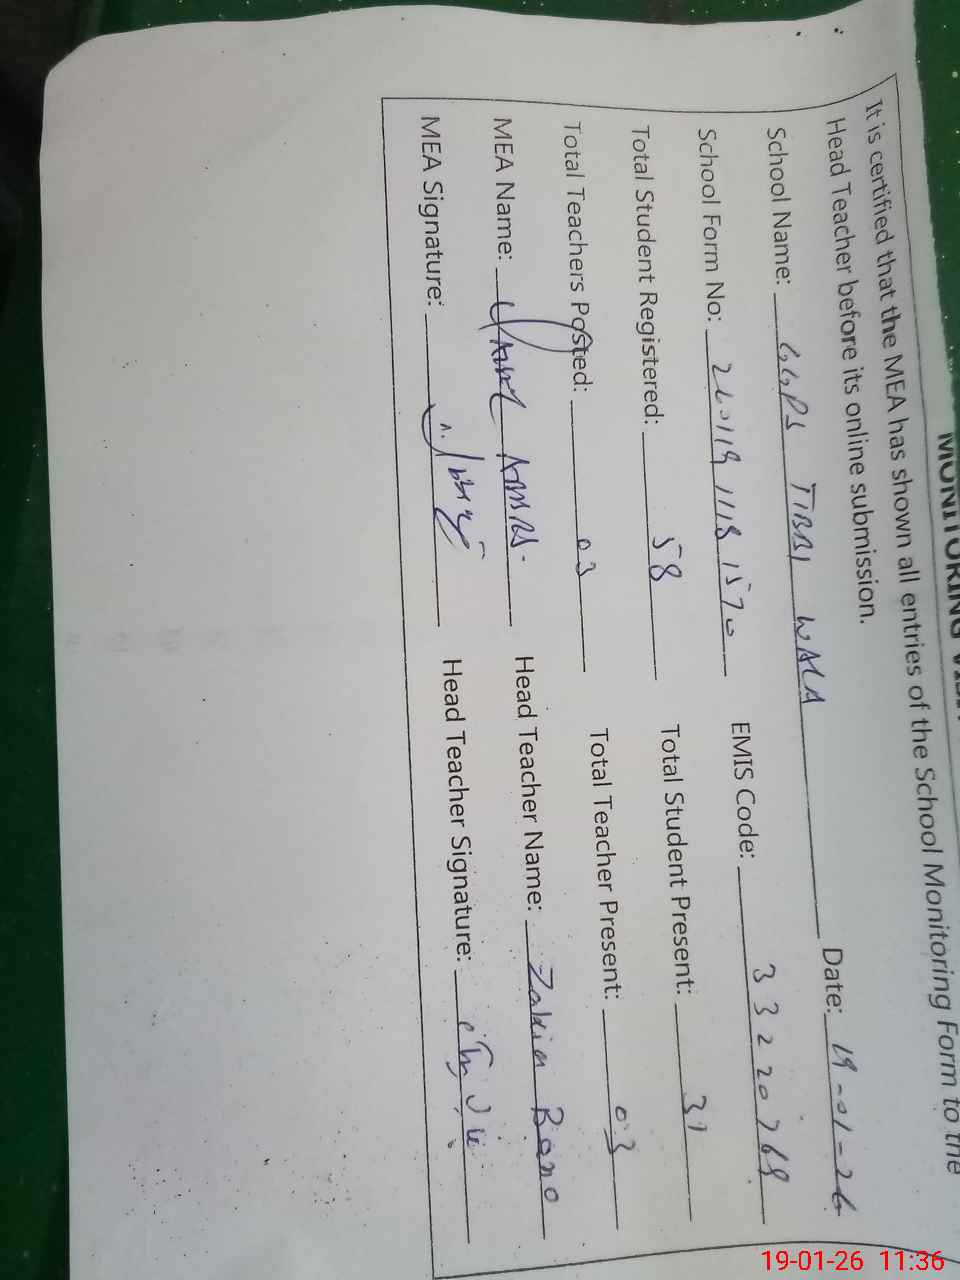 MONITORING VISI
It is certified that the MEA has shown all entries of the School Monitoring Form to the
Head Teacher before its online submission.
School Name: GGPS TIBBI WALA Date: 19-01-26
School Form No: 260119 1118 1570 EMIS Code: 33220768
Total Student Registered: 58 Total Student Present: 37
Total Teachers Posted: 03 Total Teacher Present: 03
MEA Name: Head Teacher Name: Zakia Bano
MEA Signature: Head Teacher Signature:
19-01-26 11:36